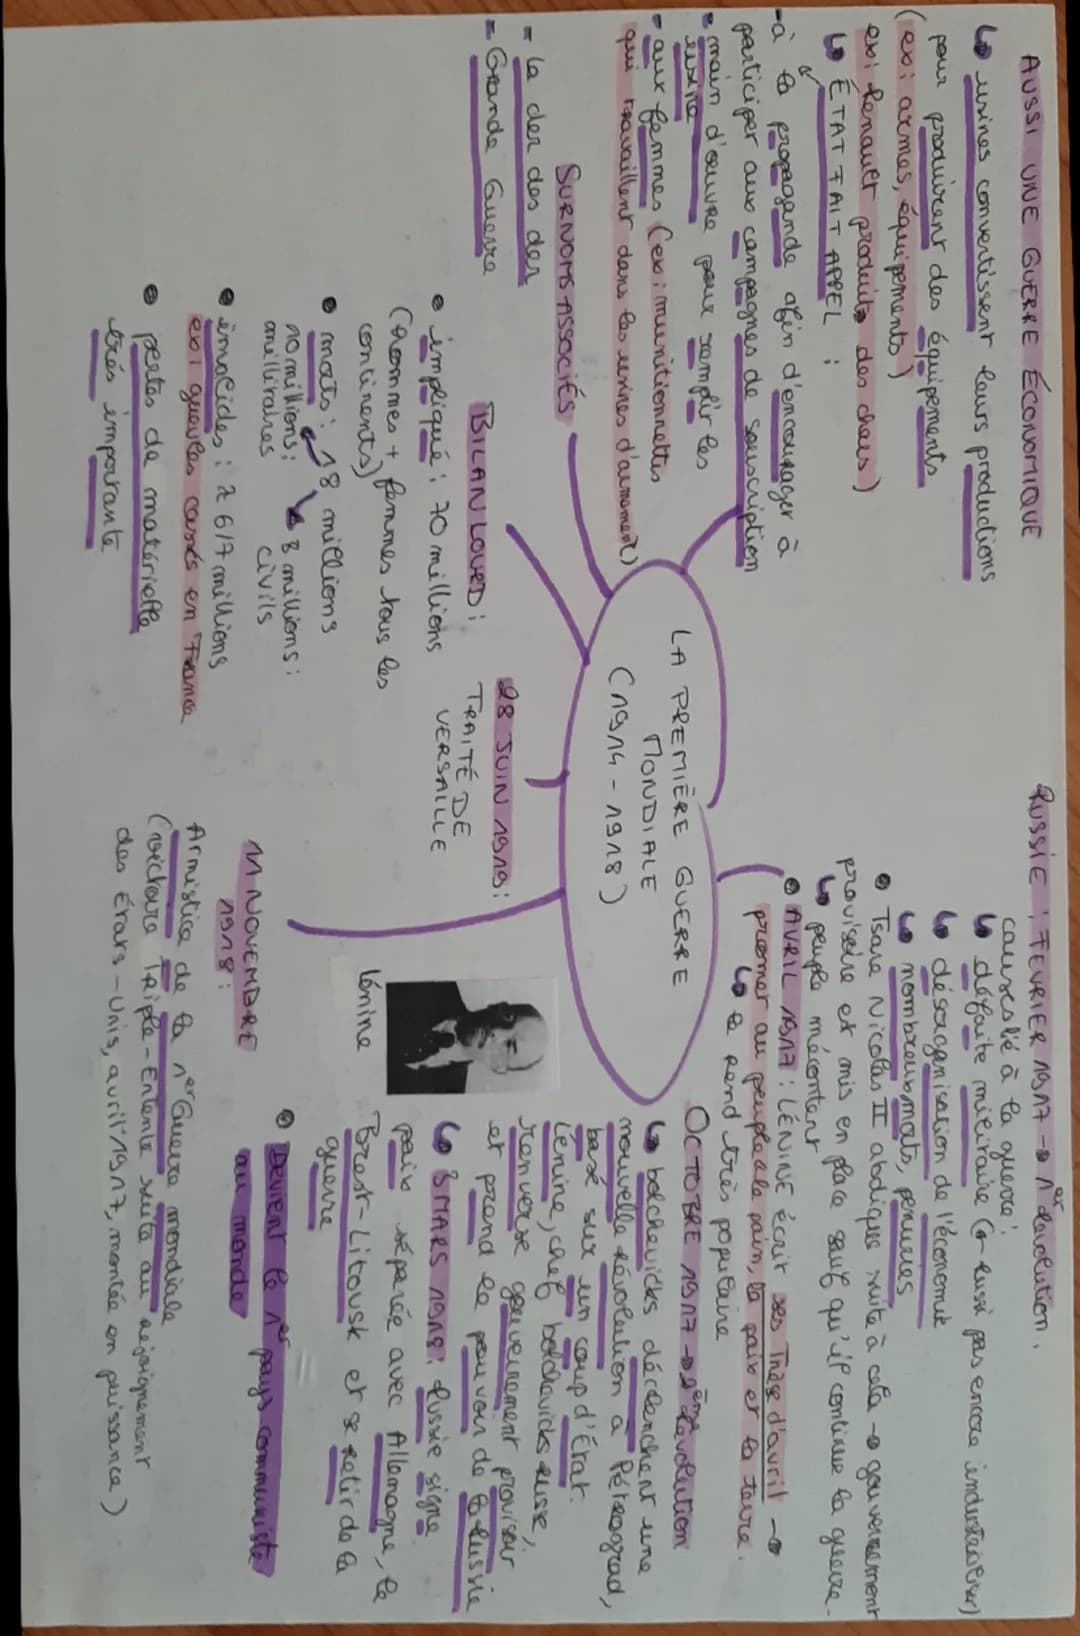 AUSSI UNE GUERRE ÉCONOMIQUE
↳ usines convertissent leurs productions
pour produirent des équipements
(ex: armes, équipements)
ex: Renault produits des chars)
↳ ÉTAT FAIT APPEL :
-à la propagande afin d'encourager à
participer aux campagnes de souscription
- main d'œuvre pour remplir les
usine
- aux femmes (ex: munitionnettes
qui travaillent dans les usines d'armement)
SURNOMS ASSOCIÉS
- la der des der
- Grande Guerre
BILAN LOURD :
• impliqué : 70 millions
(hommes + femmes tous les
continents)
• morts : 18 millions
10 millions : ↳ 8 millions :
millitaires civils
• invalides : ≈ 6/7 millions
ex: gueules cassés en France
• pertes de matérielle
très importante
LA PREMIÈRE GUERRE
MONDIALE
(1914 - 1918)
28 JUIN 1919 :
TRAITÉ DE
VERSAILLE
11 NOVEMBRE
1918 :
Armistice de la 1er Guerre mondiale
(victoire Triple-Entente suite au rejoignement
des États-Unis, avril 1917, montée en puissance)
RUSSIE : FEVRIER 1917 → 1er Révolution.
causes lié à la guerre :
↳ défaite militaire (← Russi pas encore industrialiser)
↳ désorganisation de l'économit
↳ nombreux morts, penuries
• Tsare Nicolas II abdique suite à cela → gouvernement
provisoire et mis en place sauf qu'il continue la guerre.
↳ peuple mécontent
• AVRIL 1917 : LÉNINE écrit ses Thèse d'avril →
promet au peuple le pain, la paix et la terre.
↳ le rend très populaire
OCTOBRE 1917 → 2ème Révolution
↳ bolchevicks déclenchent une
nouvelle révolution à Pétrograd,
basé sur un coup d'État.
Lénine, chef bolchevicks russe,
renverse gouvernement provisoir
et prend le pouvoir de la Russie
↳ 3 MARS 1918 : Russie signe
paix séparée avec Allemagne, le
Brest-Litovsk et se retir de la
guerre
Lénine
• Devient le 1er pays communiste
au monde